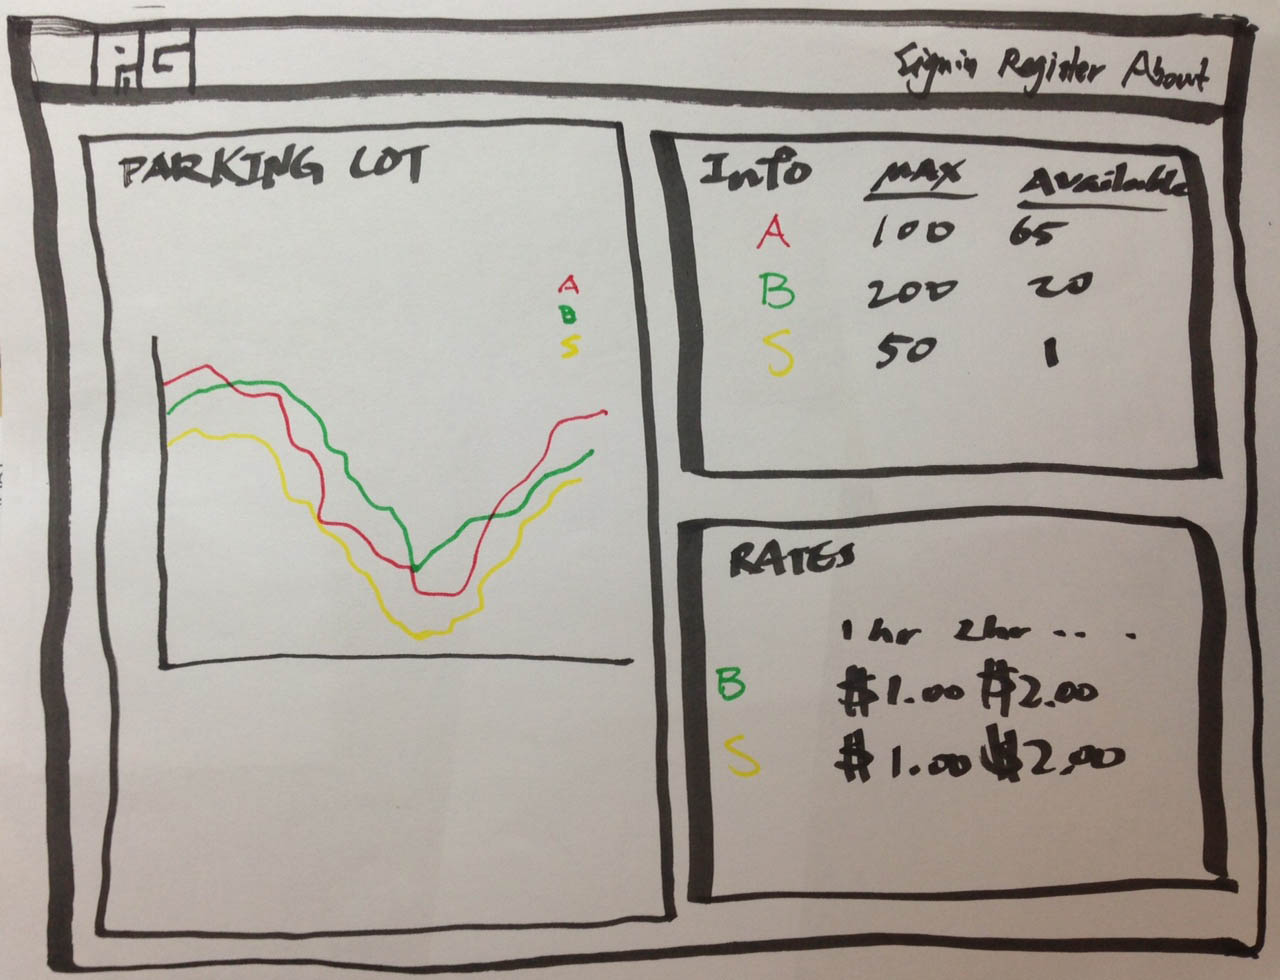 Signin Register About
PARKING LOT
A
B
S
Info MAX Available
A 100 65
B 200 20
S 50 1
RATES
1 hr 2hr .. . .
B $1.00 $2.00
S $1.00 $2.00